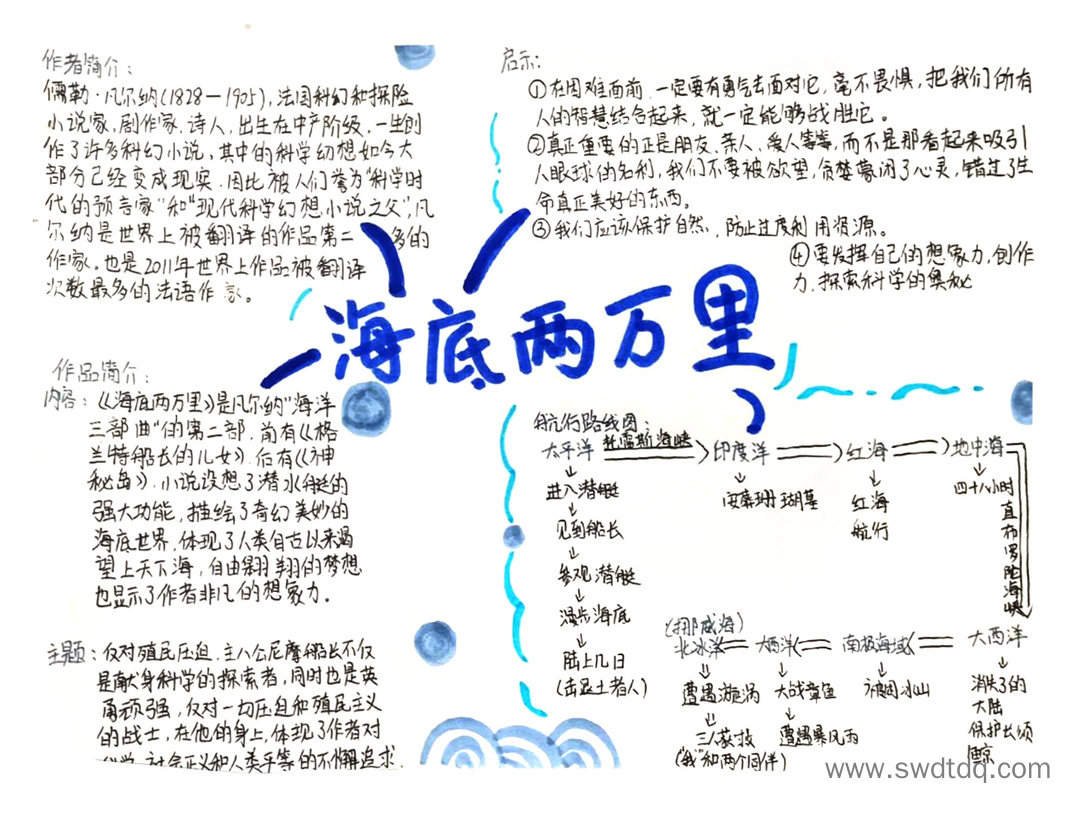 作者简介：
儒勒·凡尔纳(1828—1905)，法国科幻和探险
小说家，剧作家，诗人，出生在中产阶级，一生创
作了许多科幻小说，其中的科学幻想如今大
部分已经变成现实．因此被人们誉为“科学时
代的预言家”和“现代科学幻想小说之父”，凡
尔纳是世界上被翻译的作品第二 多的
作家。也是2011年世界上作品被翻译
次数最多的法语作家。
启示：
①在困难面前，一定要有勇气去面对它，毫不畏惧，把我们所有
人的智慧结合起来，就一定能够战胜它。
②真正重要的正是朋友、亲人、爱人等等，而不是那看起来吸引
人眼球的名利，我们不要被欲望，贪婪蒙闭了心灵，错过了生
命真正美好的东西。
③我们应该保护自然，防止过度利用资源。
④要发挥自己的想象力，创作
力，探索科学的奥秘
海底两万里
作品简介：
内容：《海底两万里》是凡尔纳“海洋
三部曲”的第二部．前有《格
兰特船长的儿女》．后有《神
秘岛》．小说设想了潜水艇的
强大功能，描绘了奇幻美妙的
海底世界．体现了人类自古以来渴
望上天下海，自由翱翔的梦想
也显示了作者非凡的想象力．
主题：反对殖民压迫．主人公尼摩船长不仅
是献身科学的探索者，同时也是英
勇顽强，反对一切压迫和殖民主义
的战士，在他的身上，体现了作者对
科学，社会正义和人类平等的不懈追求．
航行路线图：
太平洋 托雷斯海峡 印度洋 红海 地中海
进入潜艇
见到船长
参观潜艇
漫步海底
陆上几日
(击退土著人)
采珊瑚墓
红海
航行
四十八小时
直布罗陀海峡
(挪威海)
北冰洋 大西洋 南极海域 大西洋
遭遇漩涡
三人获救
(“我”和两个同伴)
大战章鱼
遭遇暴风雨
被困冰山
消失了的
大陆
保护长须
鲸
www.swdtdq.com